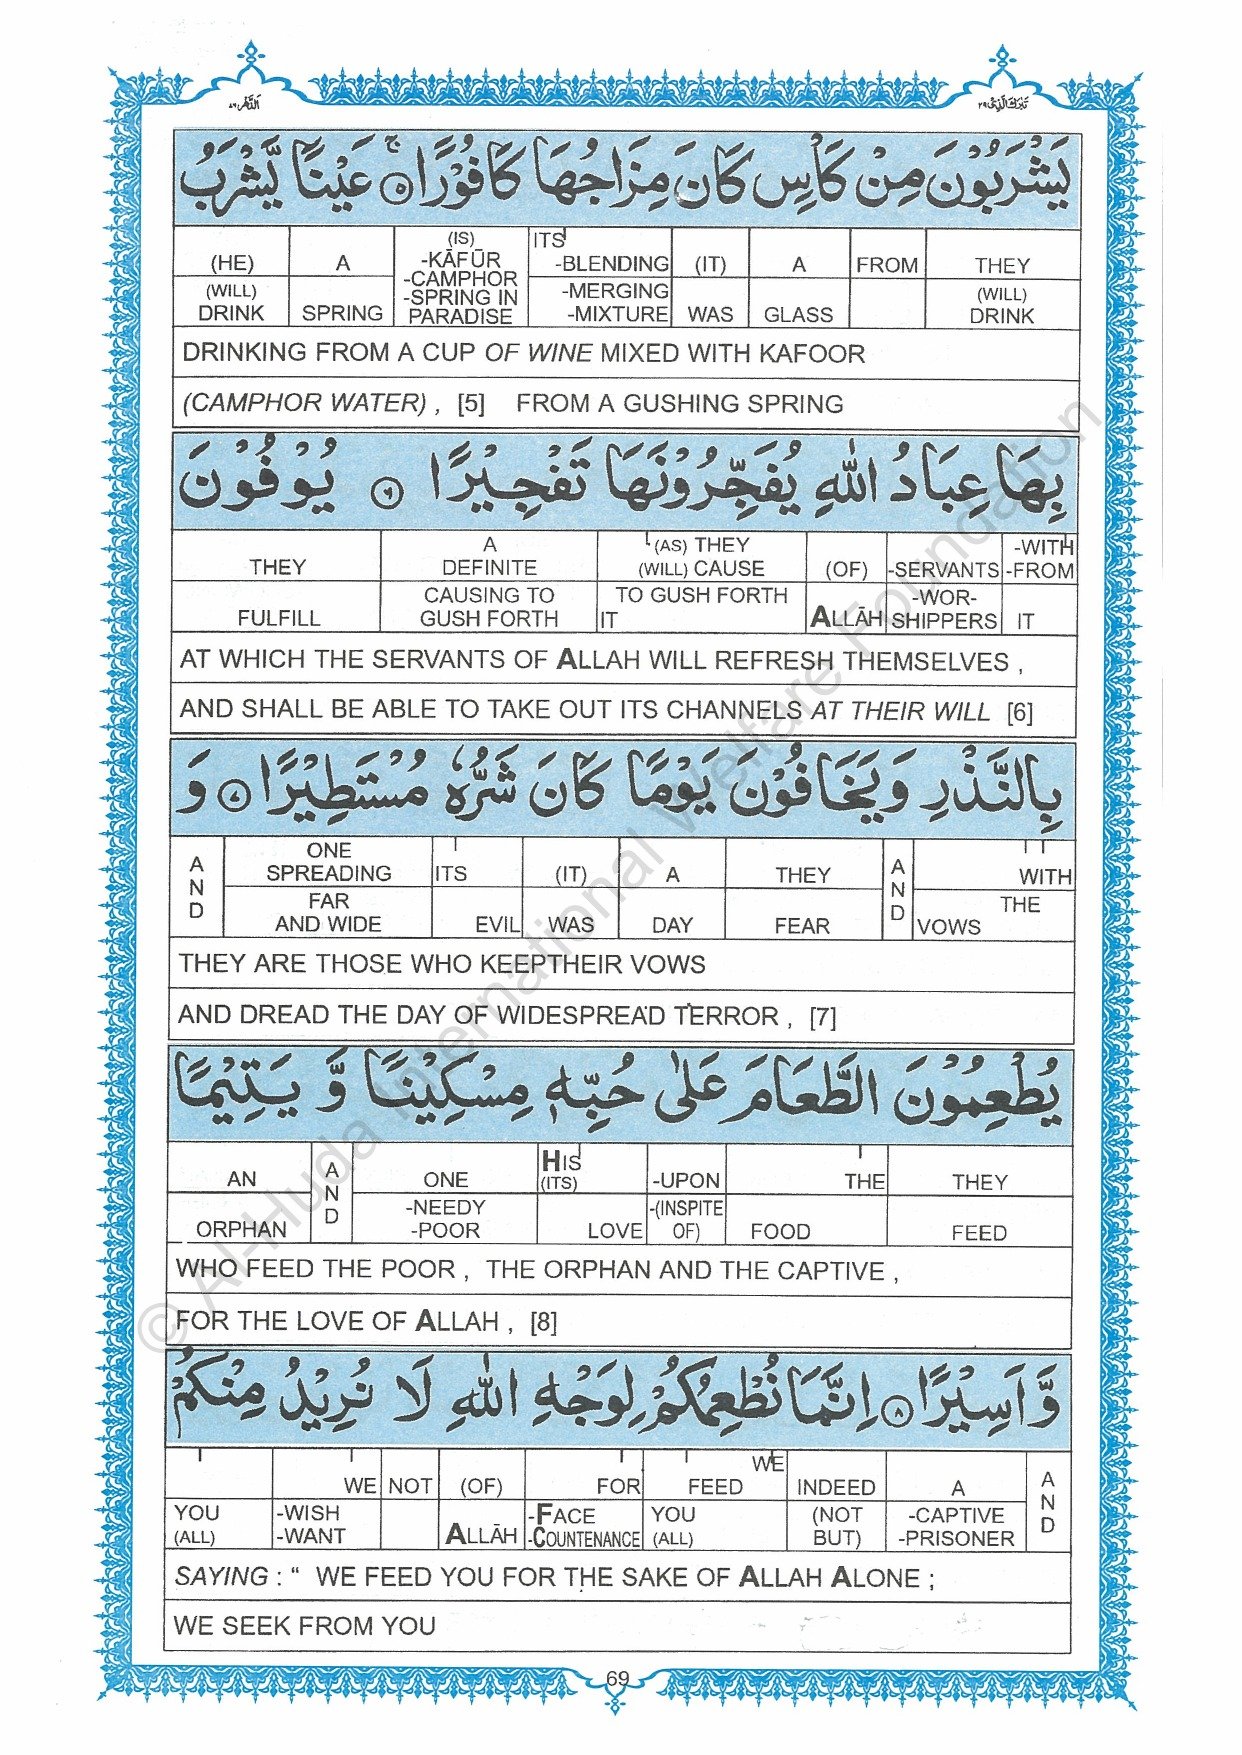 الدهر ٧٦
تبرك الذي ٢٩
يَشْرَبُوْنَ مِنْ كَاْسٍ كَانَ مِزَاجُهَا كَافُوْرًا ۚ ٥ عَيْنًا يَّشْرَبُ
THEY FROM A (IT) ITS -BLENDING (IS) -KĀFŪR -CAMPHOR A (HE)
(WILL) DRINK GLASS WAS -MERGING -MIXTURE -SPRING IN PARADISE SPRING (WILL) DRINK
DRINKING FROM A CUP OF WINE MIXED WITH KAFOOR
(CAMPHOR WATER) , [5] FROM A GUSHING SPRING
بِهَا عِبَادُ اللّٰهِ يُفَجِّرُوْنَهَا تَفْجِيْرًا ٦ يُوْفُوْنَ
-WITH -FROM -SERVANTS (OF) (AS) THEY (WILL) CAUSE A DEFINITE THEY
IT -WOR- SHIPPERS ALLĀH TO GUSH FORTH IT CAUSING TO GUSH FORTH FULFILL
AT WHICH THE SERVANTS OF ALLAH WILL REFRESH THEMSELVES ,
AND SHALL BE ABLE TO TAKE OUT ITS CHANNELS AT THEIR WILL [6]
بِالنَّذْرِ وَيَخَافُوْنَ يَوْمًا كَانَ شَرُّهٗ مُسْتَطِيْرًا ٧ وَ
WITH AND THEY A (IT) ITS ONE SPREADING AND
THE VOWS FEAR DAY WAS EVIL FAR AND WIDE
THEY ARE THOSE WHO KEEPTHEIR VOWS
AND DREAD THE DAY OF WIDESPREAD TERROR , [7]
يُطْعِمُوْنَ الطَّعَامَ عَلٰى حُبِّهٖ مِسْكِيْنًا وَّ يَتِيْمًا
THEY THE -UPON HIS (ITS) ONE AND AN
FEED FOOD -(INSPITE OF) LOVE -NEEDY -POOR ORPHAN
WHO FEED THE POOR , THE ORPHAN AND THE CAPTIVE ,
FOR THE LOVE OF ALLAH , [8]
وَّ اَسِيْرًا ٨ اِنَّمَا نُطْعِمُكُمْ لِوَجْهِ اللّٰهِ لَا نُرِيْدُ مِنْكُمْ
AND A INDEED WE FEED FOR (OF) NOT WE
-CAPTIVE -PRISONER (NOT BUT) YOU (ALL) -FACE -COUNTENANCE ALLĀH -WISH -WANT YOU (ALL)
SAYING : “ WE FEED YOU FOR THE SAKE OF ALLAH ALONE ;
WE SEEK FROM YOU
69
© Al-Huda International Welfare Foundation